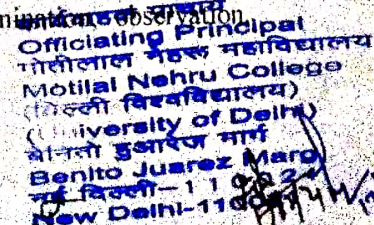 observation
Officiating Principal
मोतीलाल नेहरू महाविद्यालय
Motilal Nehru College
(दिल्ली विश्वविद्यालय)
(University of Delhi)
बेनितो हुआरेज मार्ग
Benito Juarez Marg
नई दिल्ली-1100
New Delhi-110